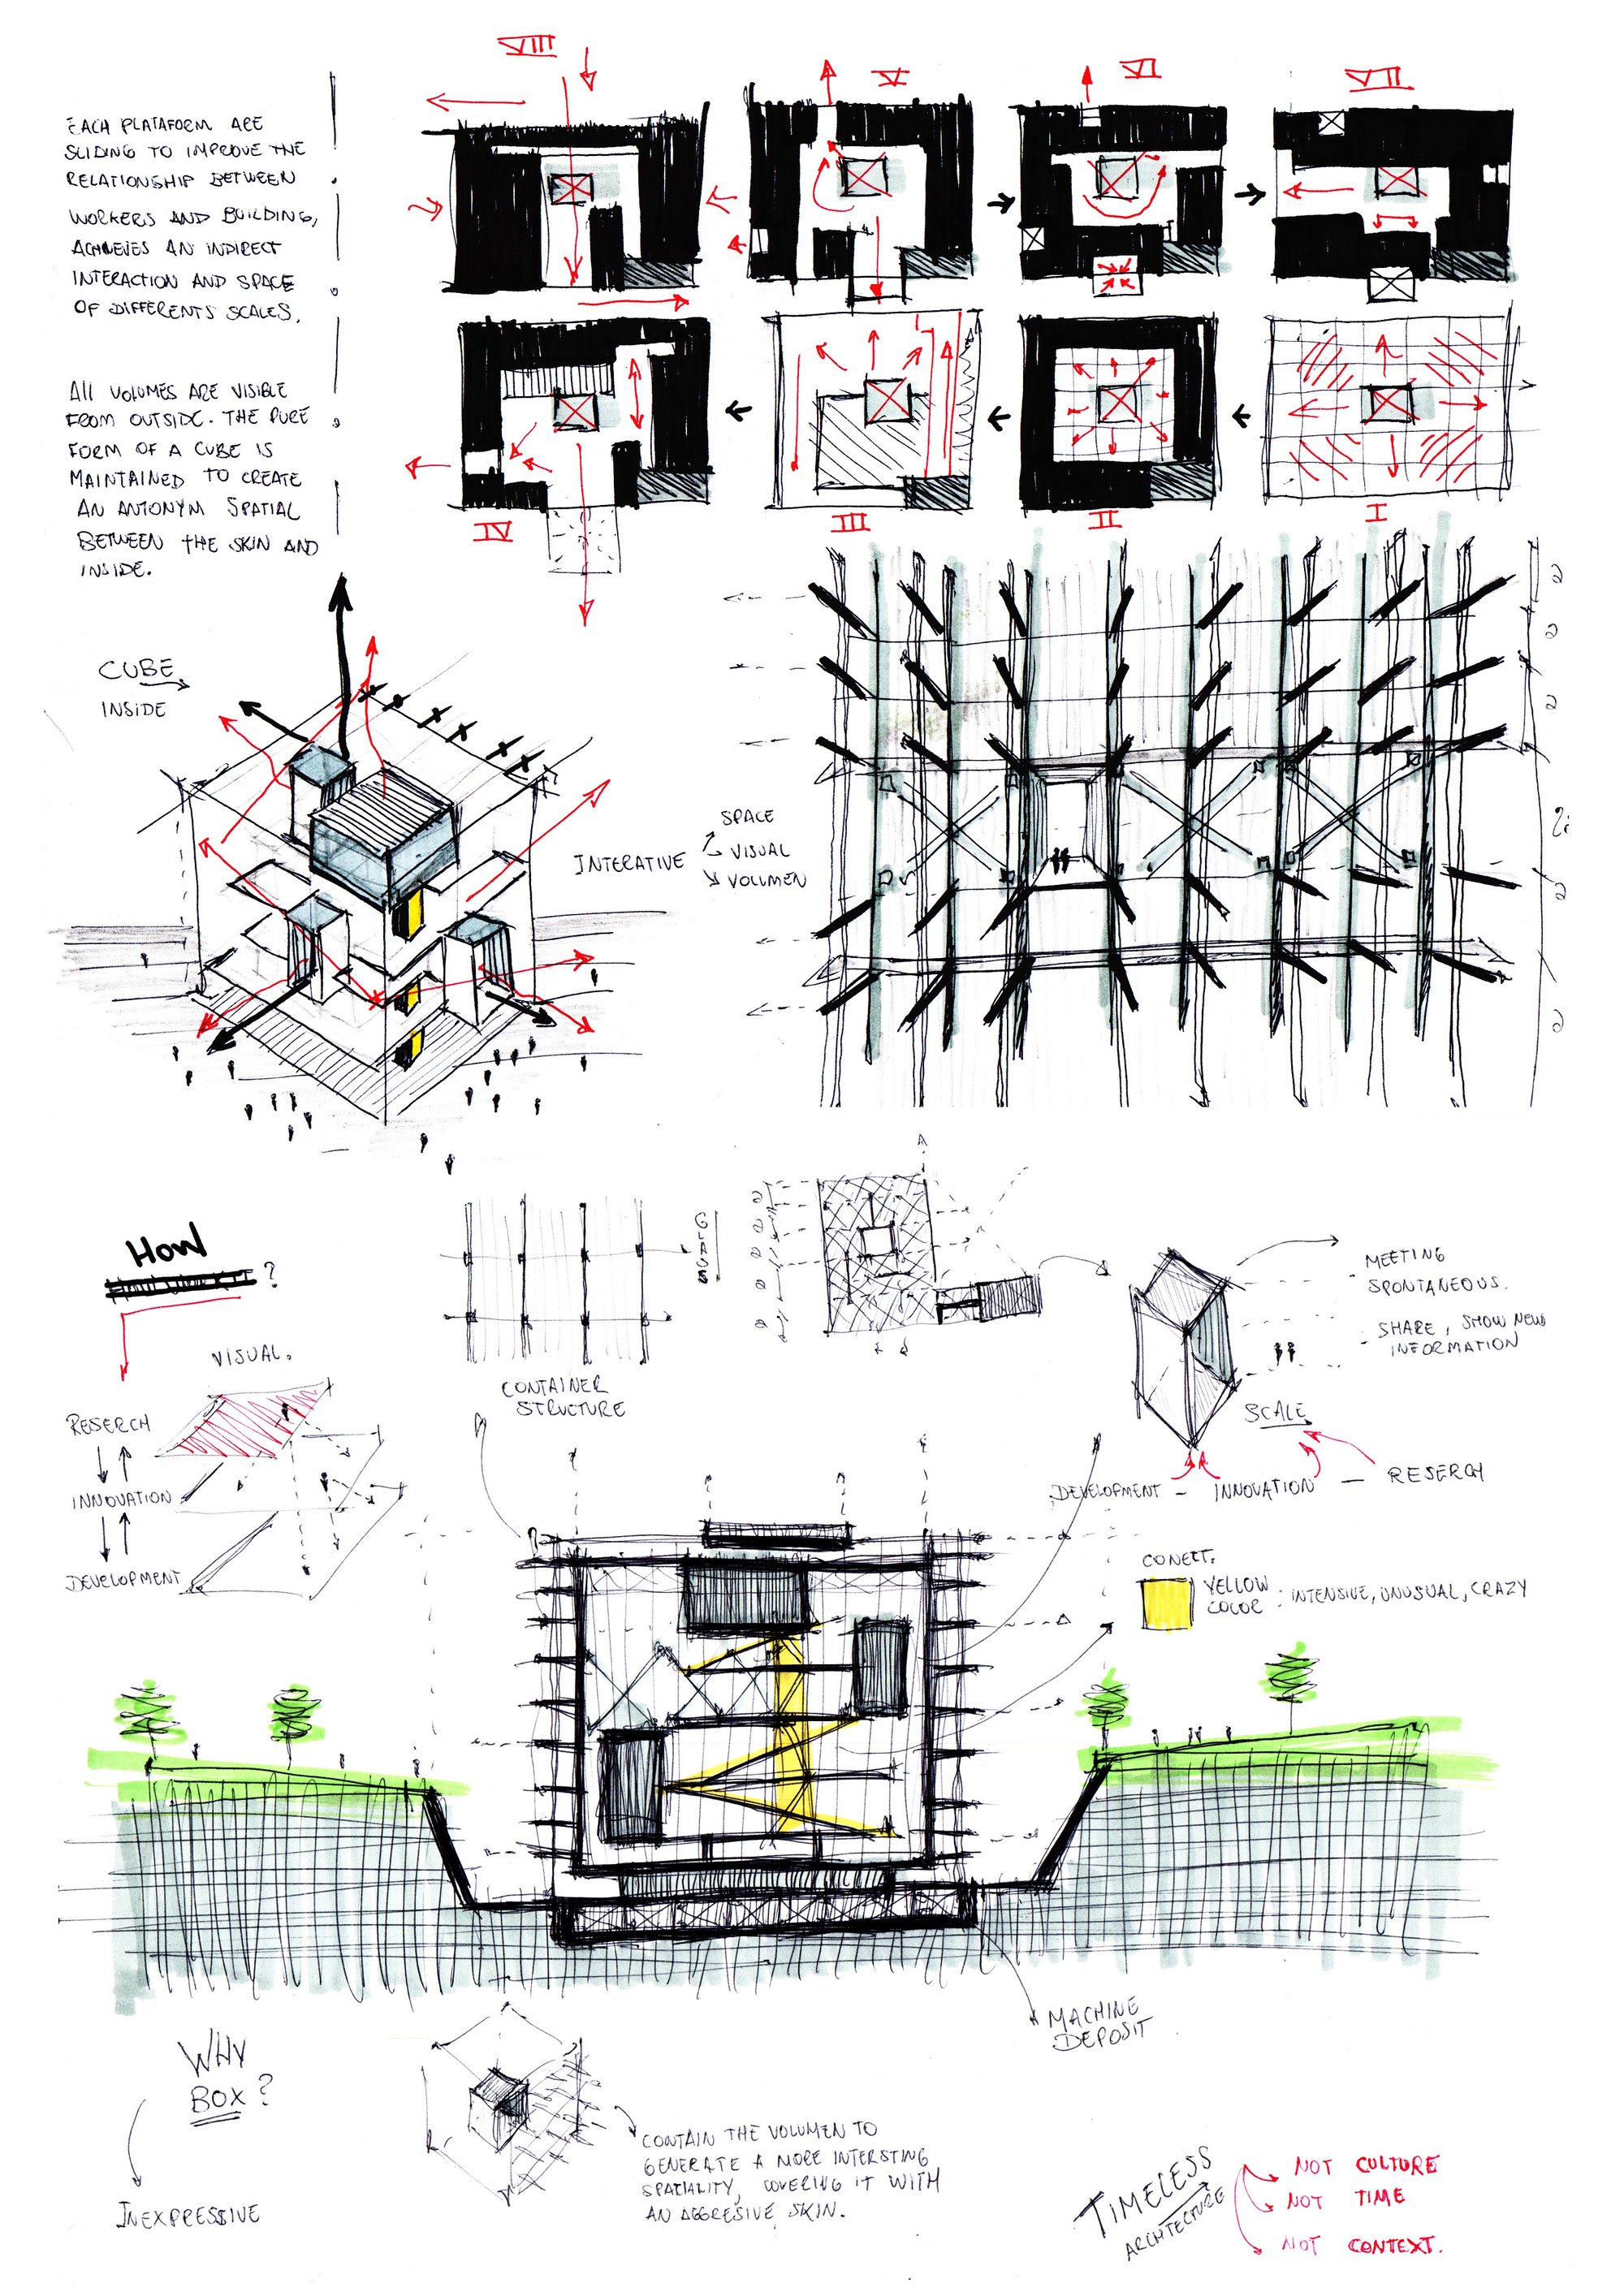 VIII
V
VI
VII
EACH PLATAFORM ARE
SLIDING TO IMPROVE THE
RELATIONSHIP BETWEEN
WORKERS AND BUILDING,
ACHIEVES AN INDIRECT
INTERACTION AND SPACE
OF DIFFERENTS SCALES.
IV
III
II
I
All VOLUMES ARE VISIBLE
FROM OUTSIDE. THE PURE
FORM OF A CUBE IS
MAINTAINED TO CREATE
AN ANTONYM SPATIAL
BETWEEN THE SKIN AND
INSIDE.
CUBE
INSIDE
INTERATIVE
SPACE
VISUAL
VOLUMEN
HOW
?
VISUAL.
RESERCH
INNOVATION
DEVELOPMENT
GLASS
CONTAINER
STRUCTURE
MEETING
SPONTANEOUS.
- SHARE, SHOW NEW
INFORMATION
SCALE
DEVELOPMENT - INNOVATION - RESERCH
CONECT.
YELLOW
COLOR : INTENSIVE, UNUSUAL, CRAZY
MACHINE
DEPOSIT
WHY
BOX?
INEXPRESSIVE
CONTAIN THE VOLUMEN TO
GENERATE A MORE INTERSTING
SPATIALITY, COVERING IT WITH
AN AGGRESIVE SKIN.
TIMELESS
ARCHTECTURE
NOT CULTURE
NOT TIME
NOT CONTEXT.